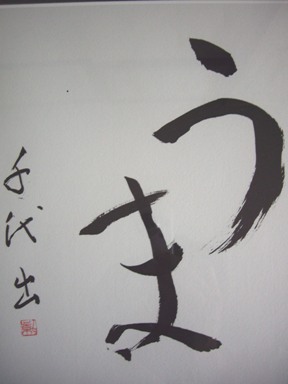 うま
千代出